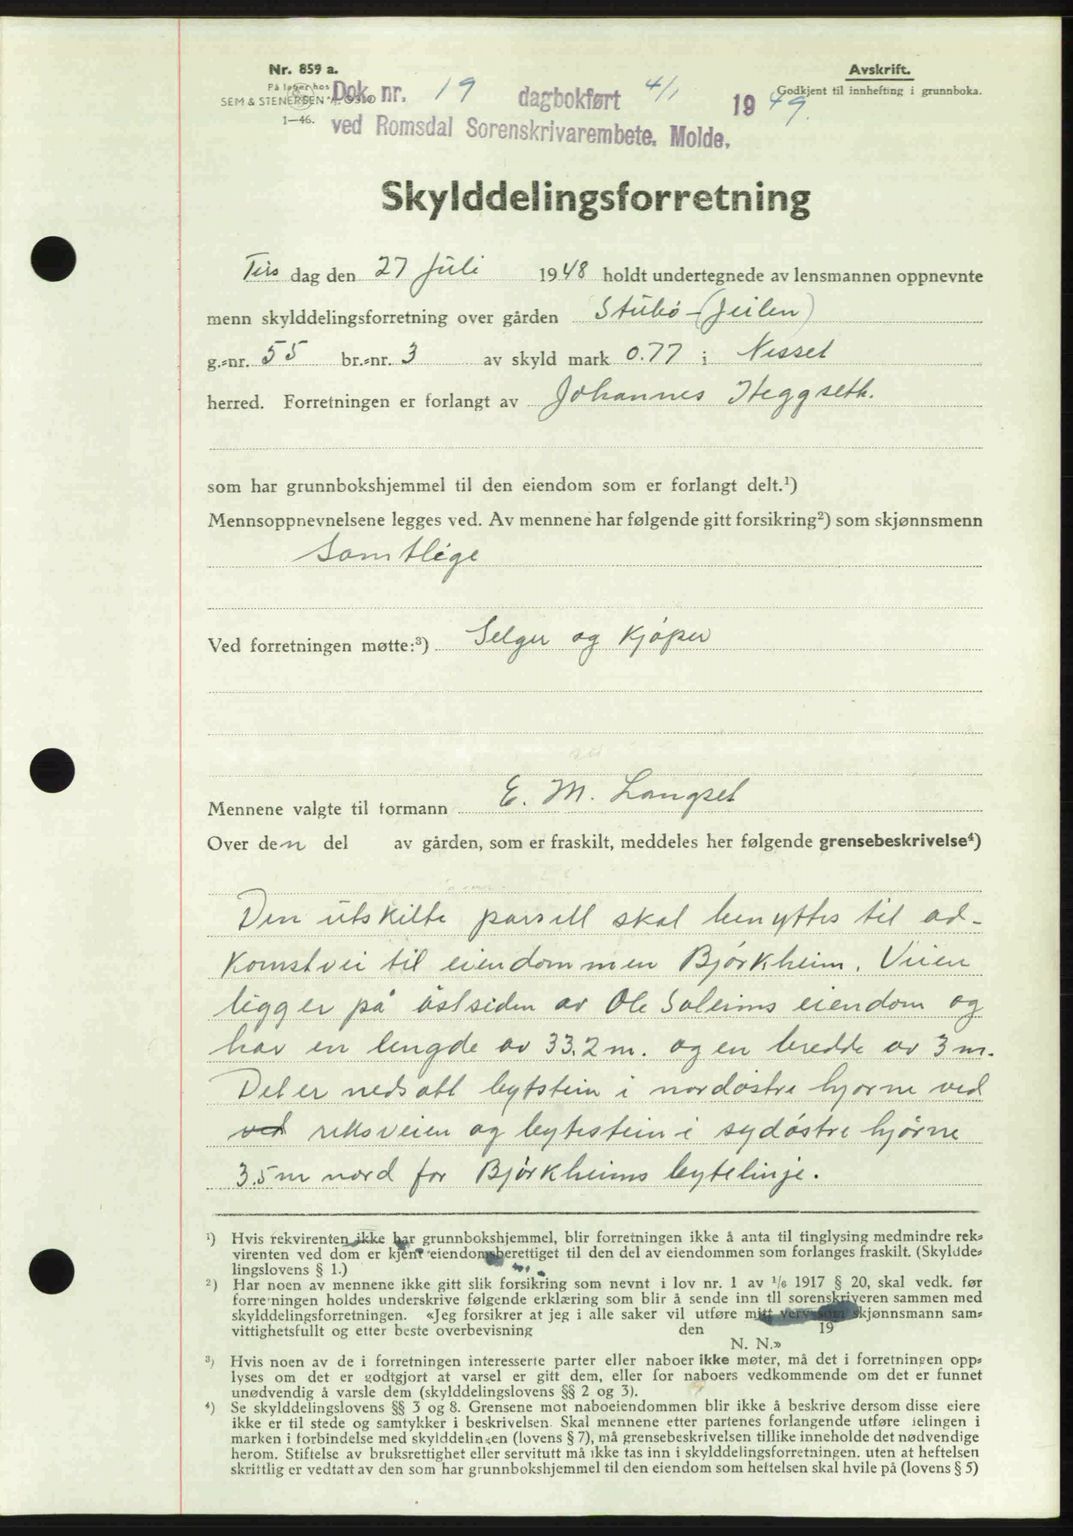 Nr. 859 a.
På lager hos
SEM & STENERSEN A/S OSLO
1—46.
Avskrift.
Godkjent til innhefting i grunnboka.
Dok. nr. 19 dagbokført 4/1 1949.
ved Romsdal Sorenskrivarembete. Molde.
Skylddelingsforretning
Tirs dag den 27 Juli 1948 holdt undertegnede av lensmannen oppnevnte
menn skylddelingsforretning over gården Stubø - (Jeilen)
g.-nr. 55 br.-nr. 3 av skyld mark 0.77 i Nesset
herred. Forretningen er forlangt av Johannes Heggseth.
som har grunnbokshjemmel til den eiendom som er forlangt delt.¹)
Mennsoppnevnelsene legges ved. Av mennene har følgende gitt forsikring²) som skjønnsmenn
Samtlige
Ved forretningen møtte:³) Selger og Kjøper
Mennene valgte til formann E. M. Langset
Over den del av gården, som er fraskilt, meddeles her følgende grensebeskrivelse⁴)
Den utskilte parsell skal benyttes til ad-
komstvei til eiendommen Bjørkheim. Veien
ligger på østsiden av Ole Soleims eiendom og
har en lengde av 33,2 m. og en bredde av 3 m.
Det er nedsatt bytstein i nordøstre hjørne ved
ved riksveien og bytestein i sydøstre hjørne
3.5 m nord for Bjørkheims bytelinje.
¹) Hvis rekvirenten ikke har grunnbokshjemmel, blir forretningen ikke å anta til tinglysing medmindre rek-
virenten ved dom er kjent eiendomsberettiget til den del av eiendommen som forlanges fraskilt. (Skyldde-
lingslovens § 1.)
²) Har noen av mennene ikke gitt slik forsikring som nevnt i lov nr. 1 av 1/6 1917 § 20, skal vedk. før
forretningen holdes underskrive følgende erklæring som blir å sende inn til sorenskriveren sammen med
skylddelingsforretningen. «Jeg forsikrer at jeg i alle saker vil utføre mitt verv som skjønnsmann sam-
vittighetsfullt og etter beste overbevisning den 19
N. N.»
³) Hvis noen av de i forretningen interesserte parter eller naboer ikke møter, må det i forretningen opp-
lyses om det er godtgjort at varsel er gitt dem, eller for naboers vedkommende om det er funnet
unødvendig å varsle dem (skylddelingslovens §§ 2 og 3).
⁴) Se skylddelingslovens §§ 3 og 8. Grensene mot naboeiendommen blir ikke å beskrive dersom disse eiere
ikke er til stede og samtykker i beskrivelsen. Skal mennene etter partenes forlangende utføre delingen i
marken i forbindelse med skylddelingen (lovens § 7), må grensebeskrivelsen tillike inneholde det nødvendige
herom. Stiftelse av bruksrettighet eller servitutt må ikke tas inn i skylddelingsforretningen, uten at heftelsen
skriftlig er vedtatt av den som har grunnbokshjemmel til den eiendom som heftelsen skal hvile på (lovens § 5)